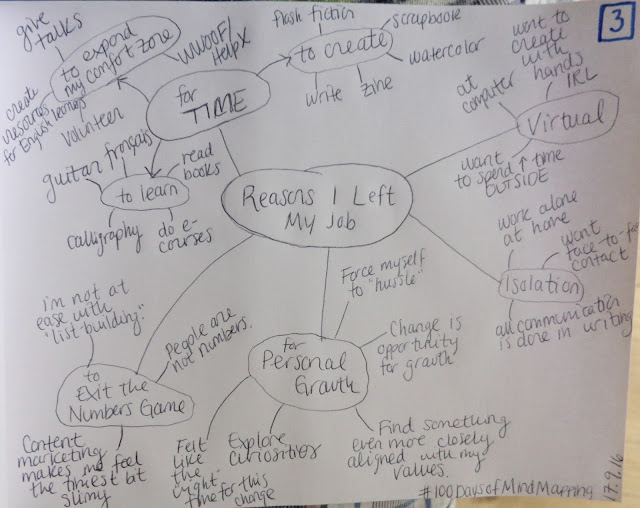 3
give
talks
to expand
my comfort zone
WWOOF/
HelpX
create
resources
for English learners
Volunteer
for
TIME
flash fiction
scrapbook
to create
watercolor
write
zine
want to
create
with
hands
IRL
at
computer
Virtual
want
to spend ↑ time
OUTSIDE
guitar
français
read
books
to learn
calligraphy
do e-
courses
Reasons I Left
My Job
work alone
at home
want
face-to-face
contact
Isolation
all communication
is done in writing
I'm not at
ease with
"list-building."
People are
not numbers.
to
Exit The
Numbers Game
Content
marketing
makes me feel
the tiniest bit
slimy
Force myself
to "hustle"
for
Personal
Growth
Change is
opportunity
for growth
Felt
like
the
right
time for this
change
Explore
curiosities
Find something
even more closely
aligned with my
values.
#100DaysofMindMapping
17.9.16